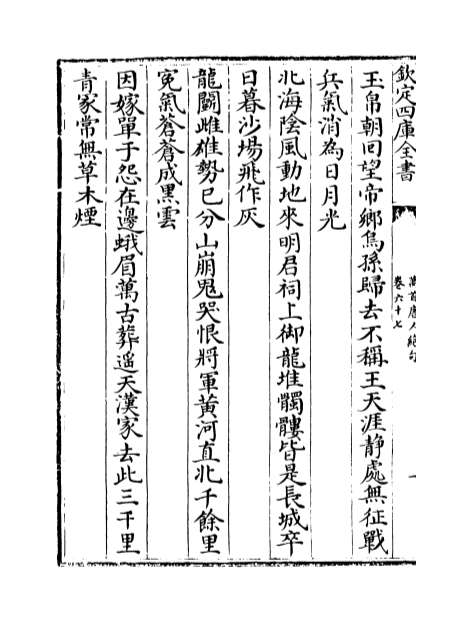 欽定四庫全書
萬首唐人絕句
卷六十七
玉帛朝回望帝鄉烏孫歸去不稱王天涯静處無征戰
兵氣消為日月光
北海陰風動地來明君祠上御龍堆髑髏皆是長城卒
日暮沙場飛作灰
龍鬭雌雄勢已分山崩鬼哭恨將軍黄河直北千餘里
寃氣蒼蒼成黒雲
因嫁單于怨在邊蛾眉萬古葬遥天漢家去此三千里
青冢常無草木煙